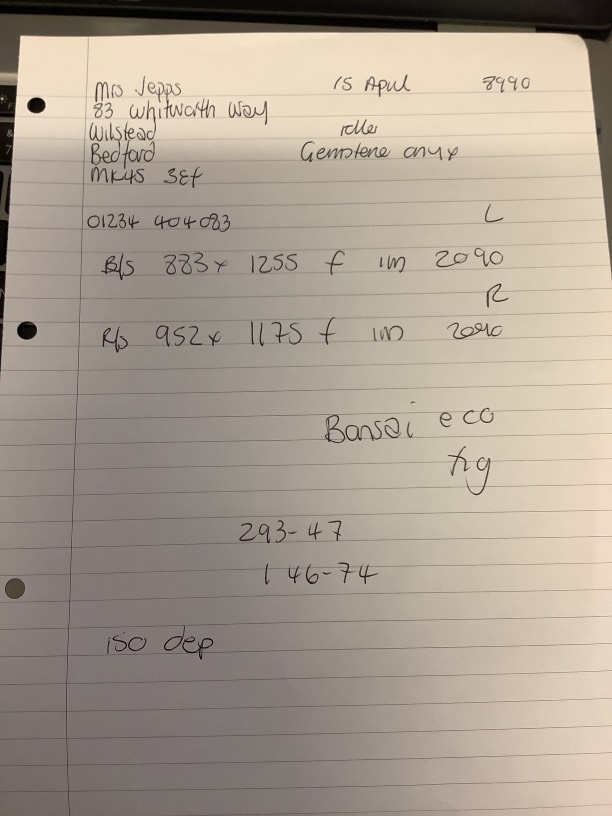 Mrs Jepps 15 April 8990
83 Whitworth Way
Wilstead roller
Bedford Gemstone onyx
MK45 3EF
01234 404083 L
B/s 883 x 1255 f im 2090
R
R/s 952 x 1175 f im 2090
Bansai eco
293-47
146-74
150 dep